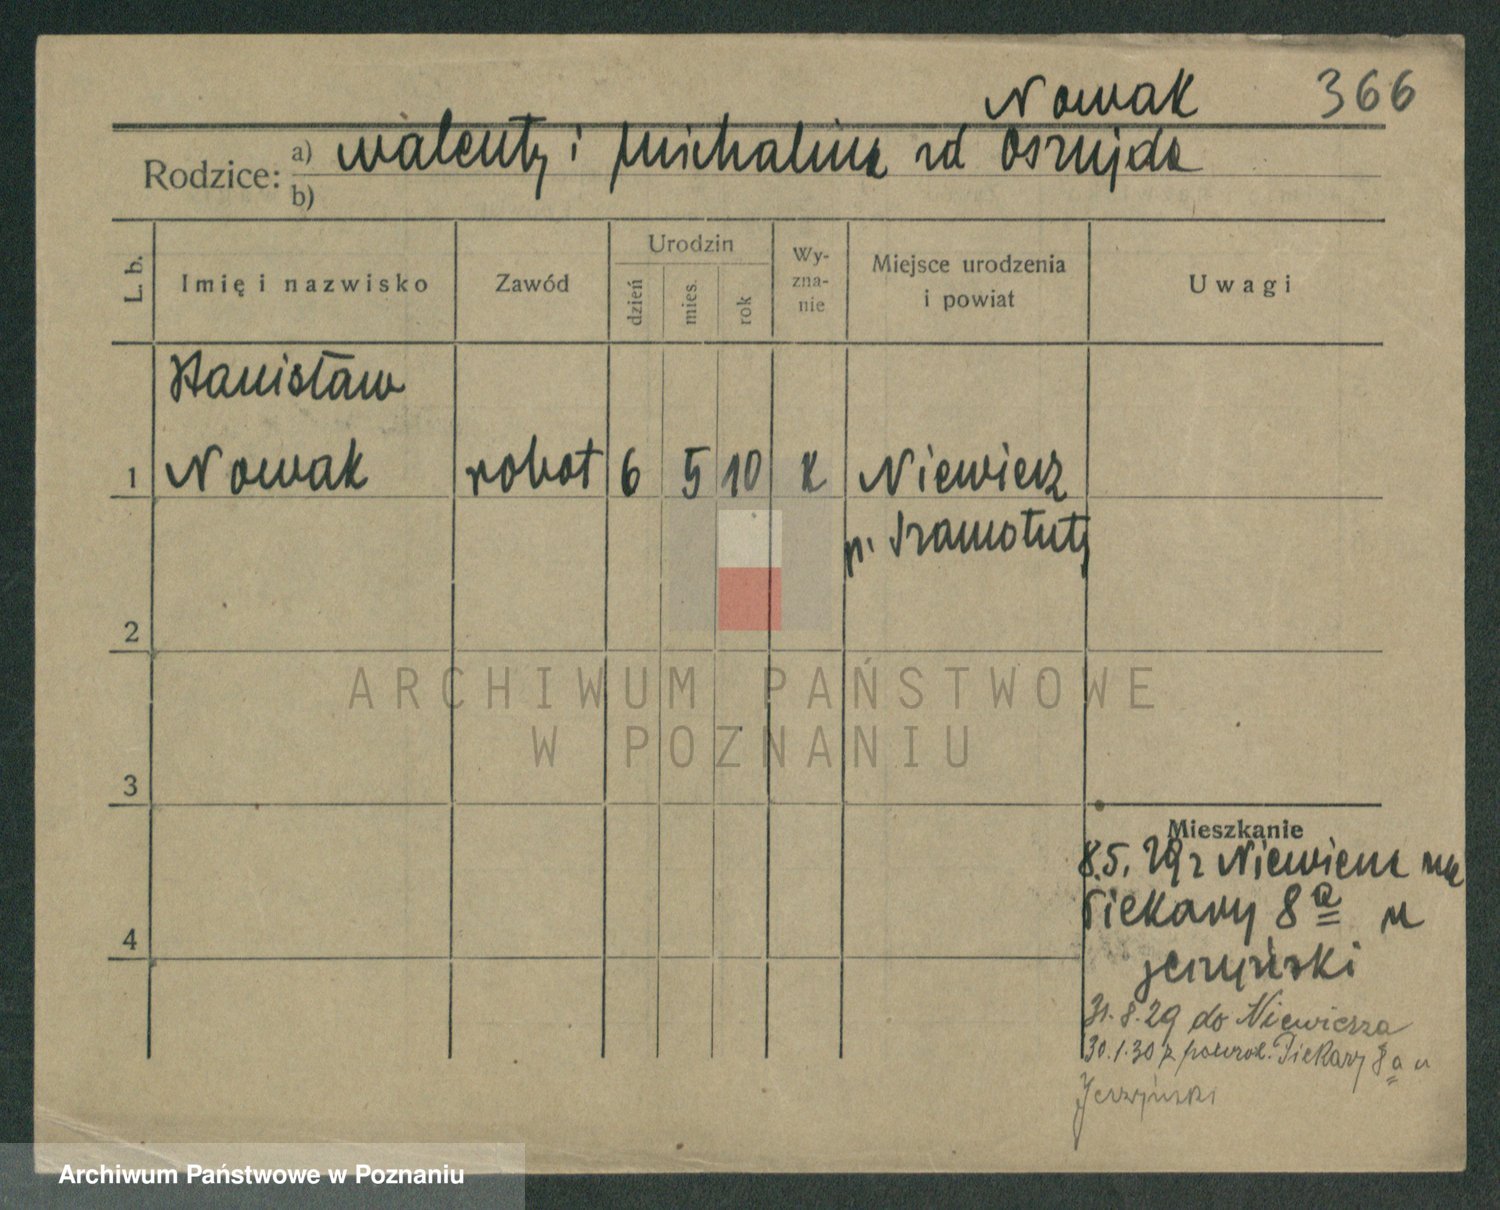 Nowak 366
Rodzice: a) Walenty i Michalina rd
b)
L. b.
Imię i nazwisko
Zawód
Urodzin
dzień
mies.
rok
Wy-
zna-
nie
Miejsce urodzenia
i powiat
Uwagi
Stanisław
1 Nowak robot 6 5 10 k Niewierz
p. Szamotuły
2
ARCHIWUM PAŃSTWOWE
W POZNANIU
3
Mieszkanie
8.5. 29 r Niewierz na
Piekary 8a u
31.8.29 do Niewierza
30.1.30 z powrot. Piekary 8a u
4
Archiwum Państwowe w Poznaniu